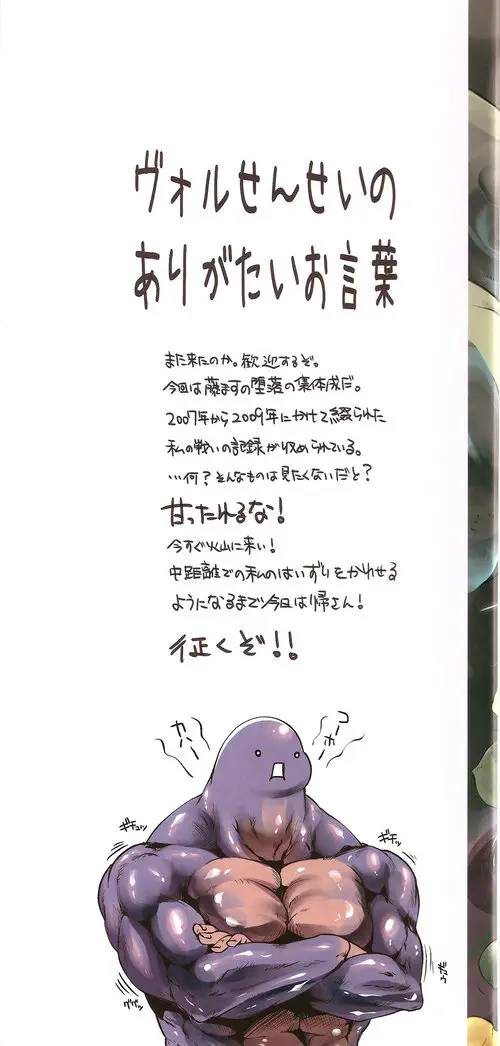 ヴォルせんせいの
ありがたいお言葉
また来たのか。歓迎するぞ。
今回は藤ますの堕落の集体成だ。
2007年から2009年にかけて綴られた
私の戦いの記録が収められている。
…何？そんなものは見たくないだと？
甘ったれるな！
今すぐ火山に来い！
中距誰での私のはいずりをかわせる
ようになるまで今日は帰さん！
征くぞ!!
カハー
コーホー
ギチュッ
ギチッ
ググッ